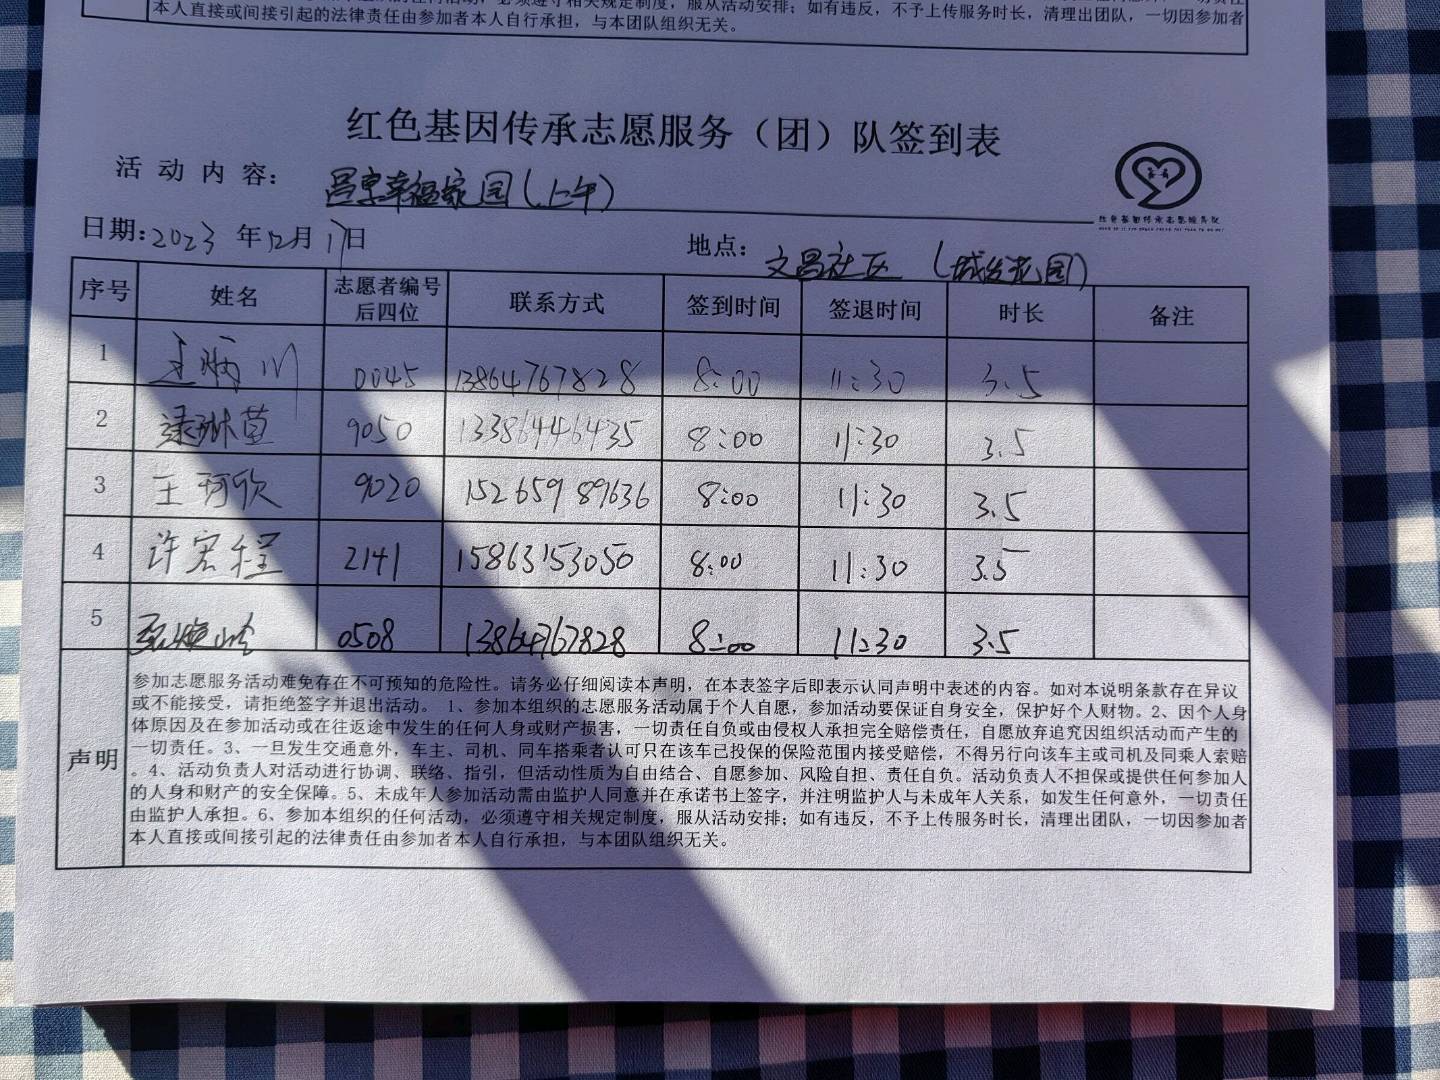 本人直接或间接引起的法律责任由参加者本人自行承担，与本团队组织无关。
红色基因传承志愿服务（团）队签到表
活动内容： 昌享幸福家园(上午)
日期:2023 年12月17日 地点: 文昌社区 (城发花园)
序号 姓名 志愿者编号后四位 联系方式 签到时间 签退时间 时长 备注
1 0045 13864767828 8:00 11:30 3.5
2 9050 133864446435 8:00 11:30 3.5
3 王珂欣 9020 15265989636 8:00 11:30 3.5
4 许宏程 2141 15863153050 8:00 11:30 3.5
5 0508 13864767828 8:00 11:30 3.5
声明
参加志愿服务活动难免存在不可预知的危险性。请务必仔细阅读本声明，在本表签字后即表示认同声明中表述的内容。如对本说明条款存在异议
或不能接受，请拒绝签字并退出活动。 1、参加本组织的志愿服务活动属于个人自愿，参加活动要保证自身安全，保护好个人财物。2、因个人身
体原因及在参加活动或在往返途中发生的任何人身或财产损害，一切责任自负或由侵权人承担完全赔偿责任，自愿放弃追究因组织活动而产生的
一切责任。3、一旦发生交通意外，车主、司机、同车搭乘者认可只在该车已投保的保险范围内接受赔偿，不得另行向该车主或司机及同乘人索赔
。4、活动负责人对活动进行协调、联络、指引，但活动性质为自由结合、自愿参加、风险自担、责任自负。活动负责人不担保或提供任何参加人
的人身和财产的安全保障。5、未成年人参加活动需由监护人同意并在承诺书上签字，并注明监护人与未成年人关系，如发生任何意外，一切责任
由监护人承担。6、参加本组织的任何活动，必须遵守相关规定制度，服从活动安排；如有违反，不予上传服务时长，清理出团队，一切因参加者
本人直接或间接引起的法律责任由参加者本人自行承担，与本团队组织无关。